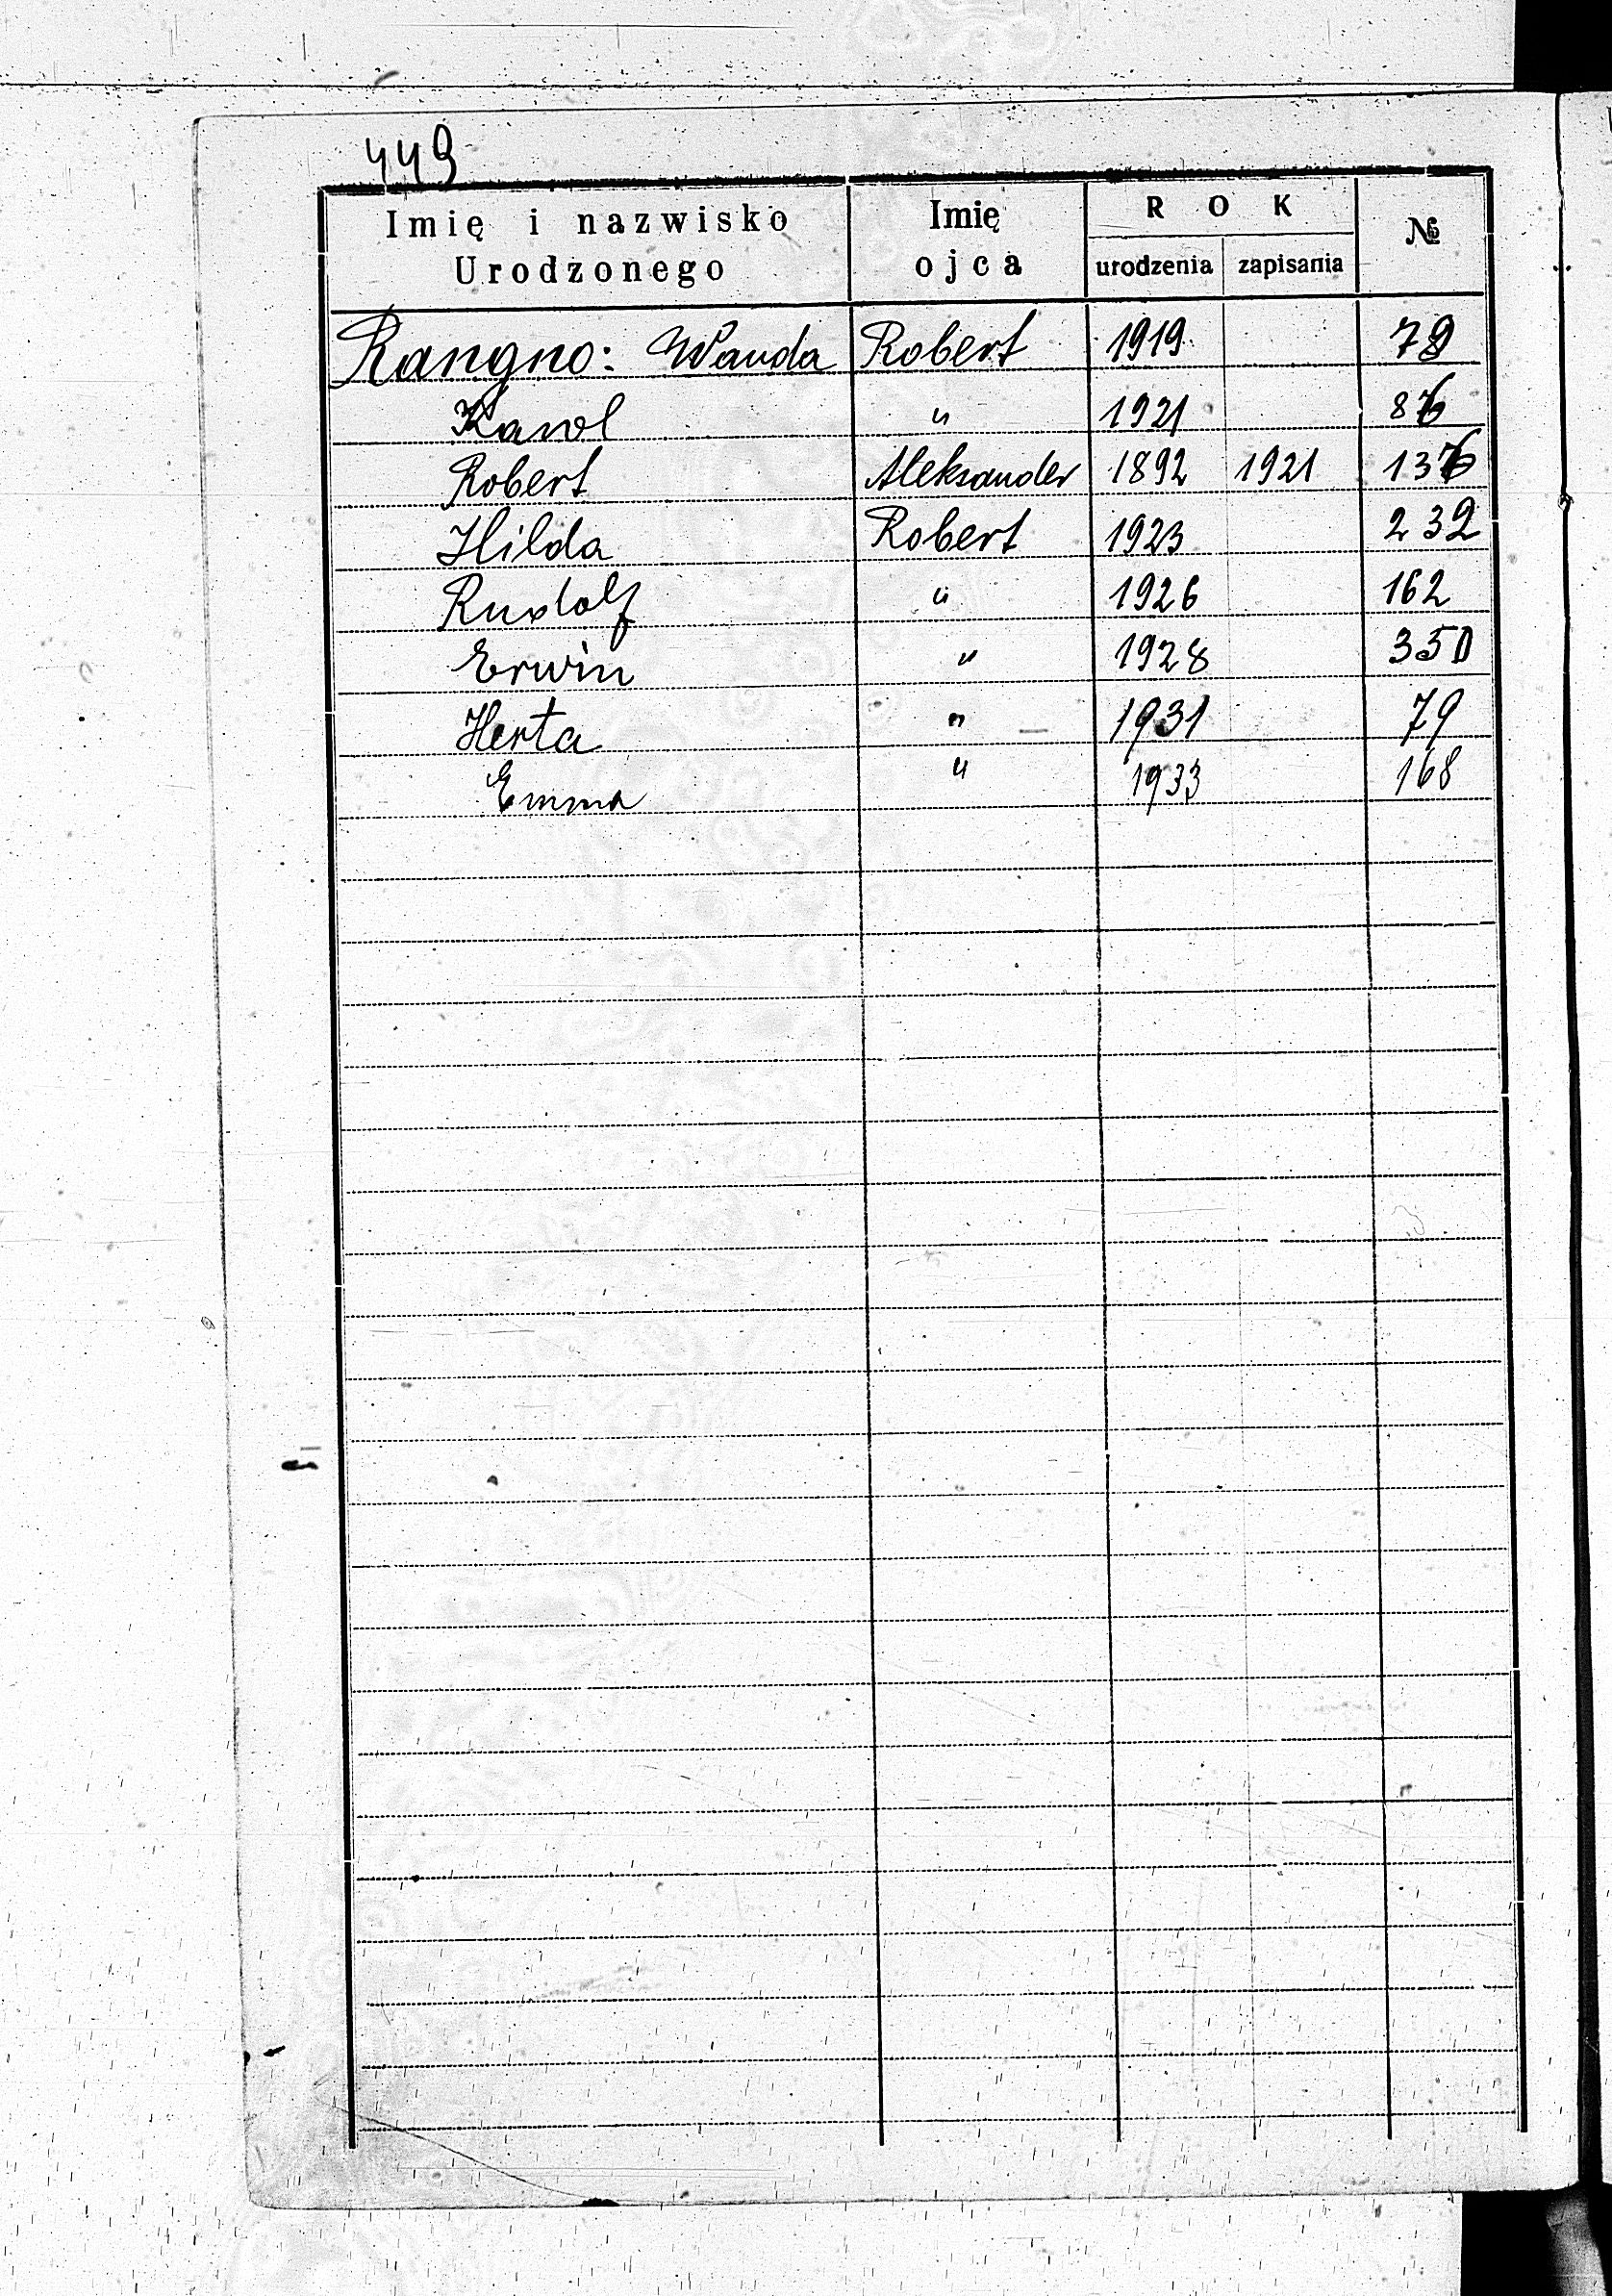 449
Imię i nazwisko Urodzonego | Imię ojca | ROK urodzenia | zapisania | №
Rangno: Wanda | Robert | 1919 | | 79
Karol | " | 1921 | | 86
Robert | Aleksander | 1892 | 1921 | 136
Hilda | Robert | 1923 | | 232
Rudolf | " | 1926 | | 162
Erwin | " | 1928 | | 350
Herta | " | 1931 | | 79
Emma | " | 1933 | | 168